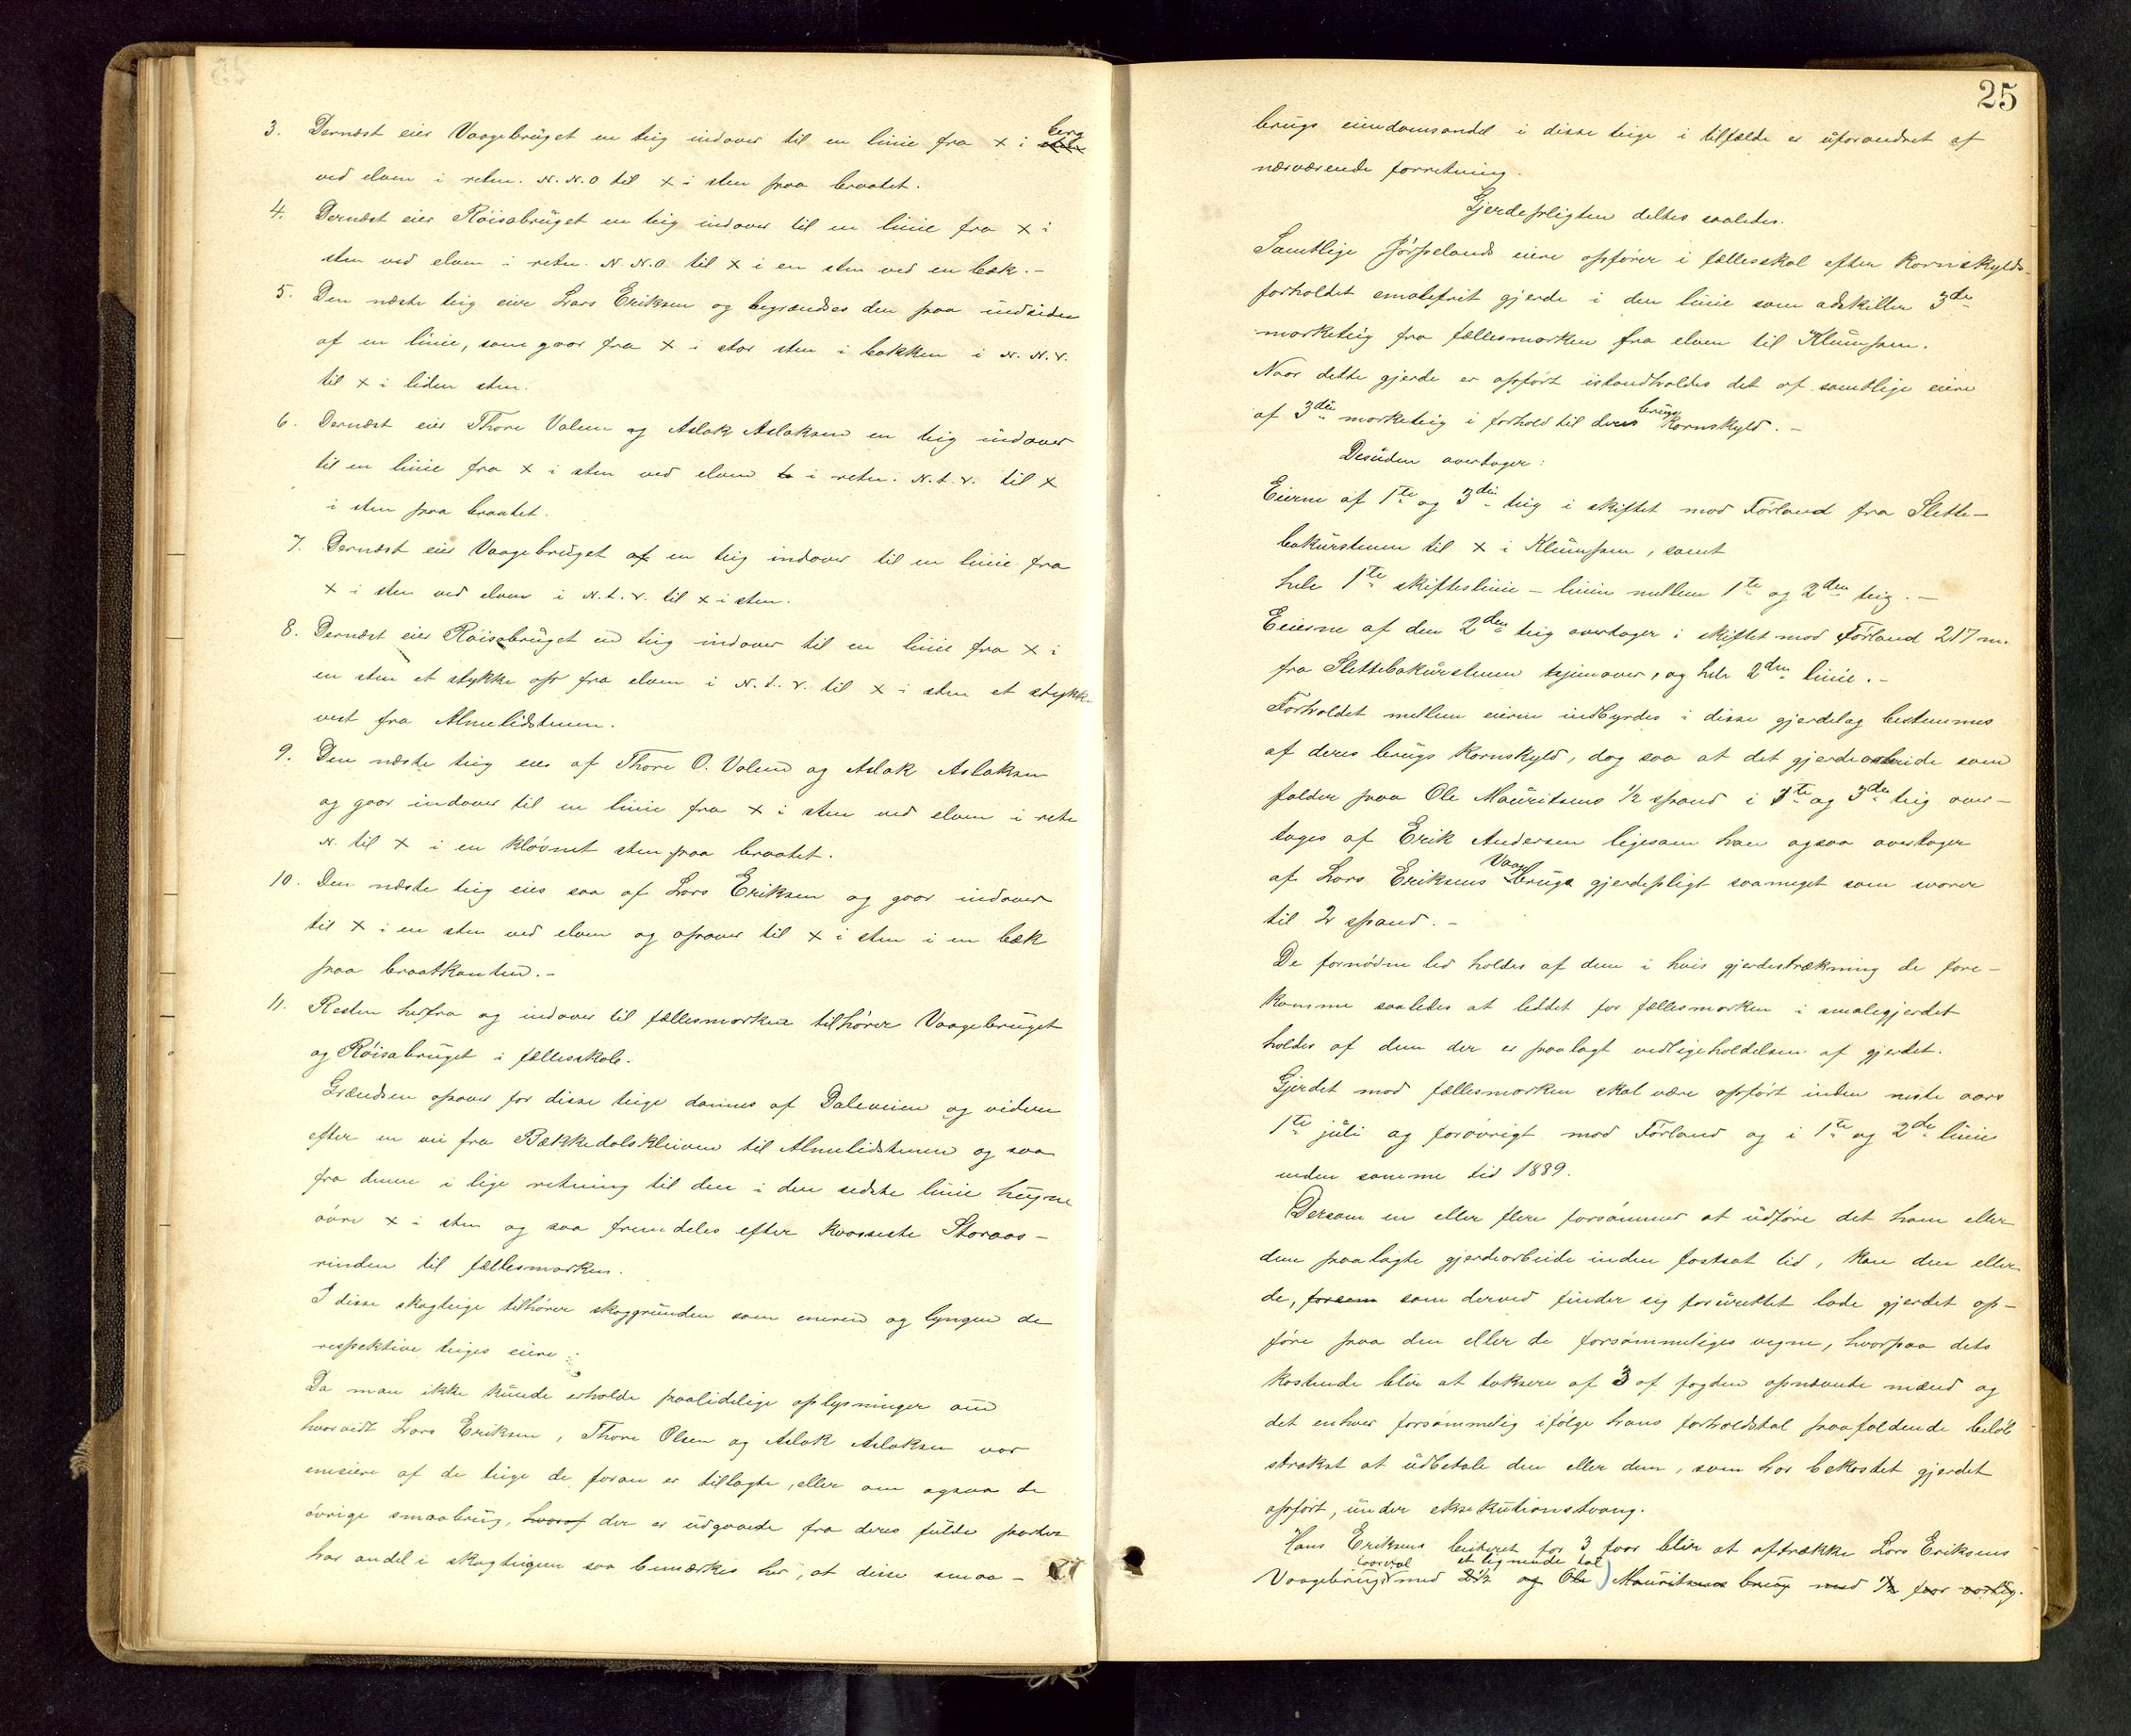 3. Dernæst eier Vaagebrüget en teig indover til en linie fra × i berg
ved elven i retn. N.N.O til × i sten paa braatet.
4. Dernæst eier Röisabrüget en teig indover til en linie fra × i
sten ved elven i retn. N.N.O. til × i en sten ved en bæk.-
5. Den næste teig eier Lars Eriksen og begrændses den paa indsiden
af en linie, som gaar fra × i stor sten i bakken i N.N.V.
til × i liden sten.
6. Dernæst eier Thore Valen og Aslak Aslaksen en teig indover
til en linie fra × i sten ved elven to i retn. N.t.V. til ×
i sten paa braatet.
7. Dernæst eier Vaagebrüget af en teig indover til en linie fra
× i sten ved elven i N.t.V. til × i sten.
8. Dernæst eier Röisabrüget en teig indover til en linie fra × i
en sten et stykke op fra elven i N.t.V. til × i sten et stykke
vest fra Almelidstenen.
9. Den næste teig eies af Thore O. Valen og Aslak Aslaksen
og gaar indover til en linie fra × i sten ved elven i retn
N. til × i en klövnet sten paa braatet.
10. Den næste teig eies saa af Lars Eriksen og gaar indover
til × i en sten ved elven og opover til × i sten i en bæk
paa braatkanten.-
11. Resten herfra og indover til fællesmarken tilhörer Vaagebrüget
og Röisabrüget i fællesskab.
Grændsen opover for disse teige dannes af Daleveien og videre
efter en vei fra Bækkedalskleiven til Almelidstenen og saa
fra denne i lige retning til den i den sidste linie
övre × i sten og saa fremdeles efter Storaas-
rinden til fællesmarken.
I disse skogteige tilhörer skoggrunden som eneren og lyngen de
respektive teiges eiere.
Da man ikke kunde erholde paalidelige oplysninger om
hvorvidt Lars Eriksen, Thore Olsen og Aslak Aslaksen var
eneeiere af de teige de foran er tillagte, eller om ogsaa de
övrige smaabrug, hvoraf der er üdgaaede fra deres fulde parter
har andel i skogteigen saa bemærkes her, at disse smaa-
25
brugs eiendomsandel i disse teige i tilfælde er uforandret af
nærværende forretning.
Gjerdepligten deltes saaledes.
Samtlige Jörpelands eiere opförer i fællesskab efter Kornskylds-
forholdet smalefrit gjerde i den linie som adskiller 3de
marketeig fra fællesmarken fra elven til Klümpen.
Naar dette gjerde er opfört istandholdes det af samtlige eiere
af 3die marketeig i forhold til deres brugs Kornskyld.-
Desüden overtager:
Eierne af 1te og 3die teig i skiftet mod Förland fra Slette-
bakürstenen til × i Klümpen, samt
hele 1te skifteslinie - linien mellem 1te og 2den teig.-
Eeierne af den 2den teig overtager i skiftet mod Förland 217 m.
fra Slettebakürstenen hjemover, og hele 2den linie.-
Forholdet mellem eierne indbyrdes i disse gjerdelag bestemmes
af deres brugs Kornskyld, dog saa at det gjerdearbeide som
falder paa Ole Mauritsens ½ spand i 1te og 3de teig over-
tages af Erik Andersen ligesom han ogsaa overtager
af Lars Eriksens Vaagebrugs gjerdepligt saameget som svarer
til 2 spand.-
De fornödne led holdes af dem i hvis gjerdestrækning de fore-
komme saaledes at leddet for fællesmarken i smalegjerdet
holdes af dem der er paalagt vedligeholdelsen af gjerdet.
Gjerdet mod fællesmarken skal være opfört inden neste aars
1te juli og forövrigt mod Förland og i 1te og 2de linie
inden samme tid 1889.
Dersom en eller flere forsömmer at üdföre det ham eller
dem paalagte gjerdearbeide inden fastsat tid, kan den eller
de, forsom som derved finder sig forürettet lade gjerdet op-
före paa den eller de forsömmeliges vegne, hvorpaa dets
kostende blir at taksere af 3 af fogden opnævnte mænd og
det enhver forsömmelig ifölge hans forholdstal paafaldende belöb
strakst at üdbetale den eller dem, som har bekostet gjerdet
opfört, ünder eksekutionstvang.
Hans Eriksens beiteret for 3 faar blir at aftrække Lars Eriksens
Vaagebrug med 2½ et lignende tal og Ole Mauritsens brug med ½ faar